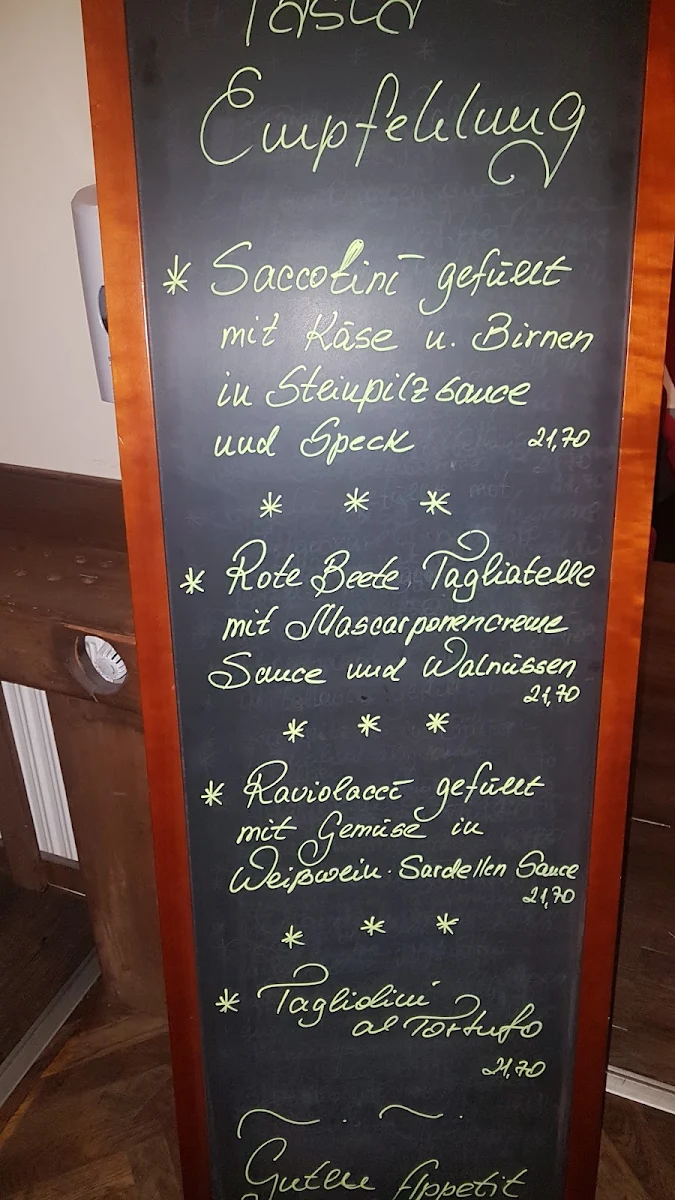 Pasta
Empfehlung
* Saccotini gefüllt
mit Käse u. Birnen
in Steinpilzsauce
und Speck 21,70
* * *
* Rote Beete Tagliatelle
mit Mascarponencreme
Sauce und Walnüssen
21,70
* * *
* Raviolacci gefüllt
mit Gemüse in
Weißwein-Sardellen Sauce
21,70
* * *
* Tagliolini
al Tortufo
21,70
Guten Appetit